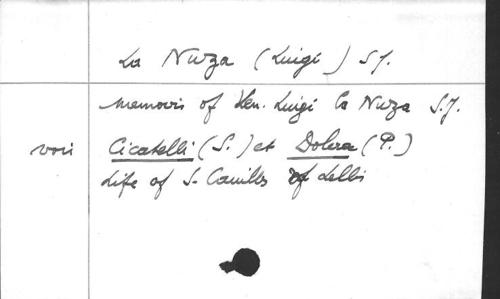 La Nuza (Luigi) S.J.
Memoirs of Ven. Luigi La Nuza S.J.
voir Cicatelli (S.) et Dolera (P.)
Life of S. Camillus of Lellis